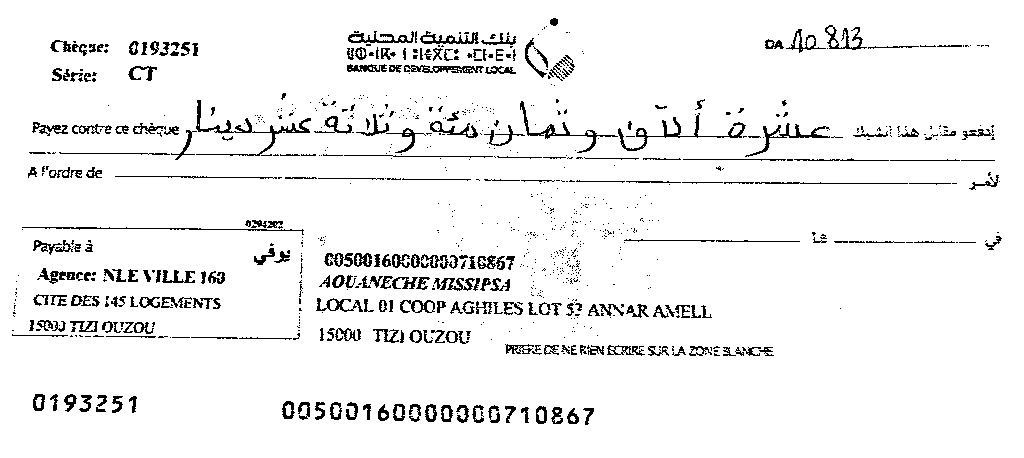 Chèque: 0193251
Série: CT
بنك التنمية المحلية
BANQUE DE DEVELOPPEMENT LOCAL
DA 10 813
Payez contre ce chèque عشرة ألاف و ثمان مئة و ثلاثة عشر دينار إدفعو مقابل هذا الشيك
A l'ordre de لأمر
0294202
Payable à يوفي
Agence: NLE VILLE 160
CITE DES 145 LOGEMENTS
15000 TIZI OUZOU
في
00500160000000710867
AOUANECHE MISSIPSA
LOCAL 01 COOP AGHILES LOT 52 ANNAR AMELL
15000 TIZI OUZOU
PRIERE DE NE RIEN ECRIRE SUR LA ZONE BLANCHE
0193251
00500160000000710867